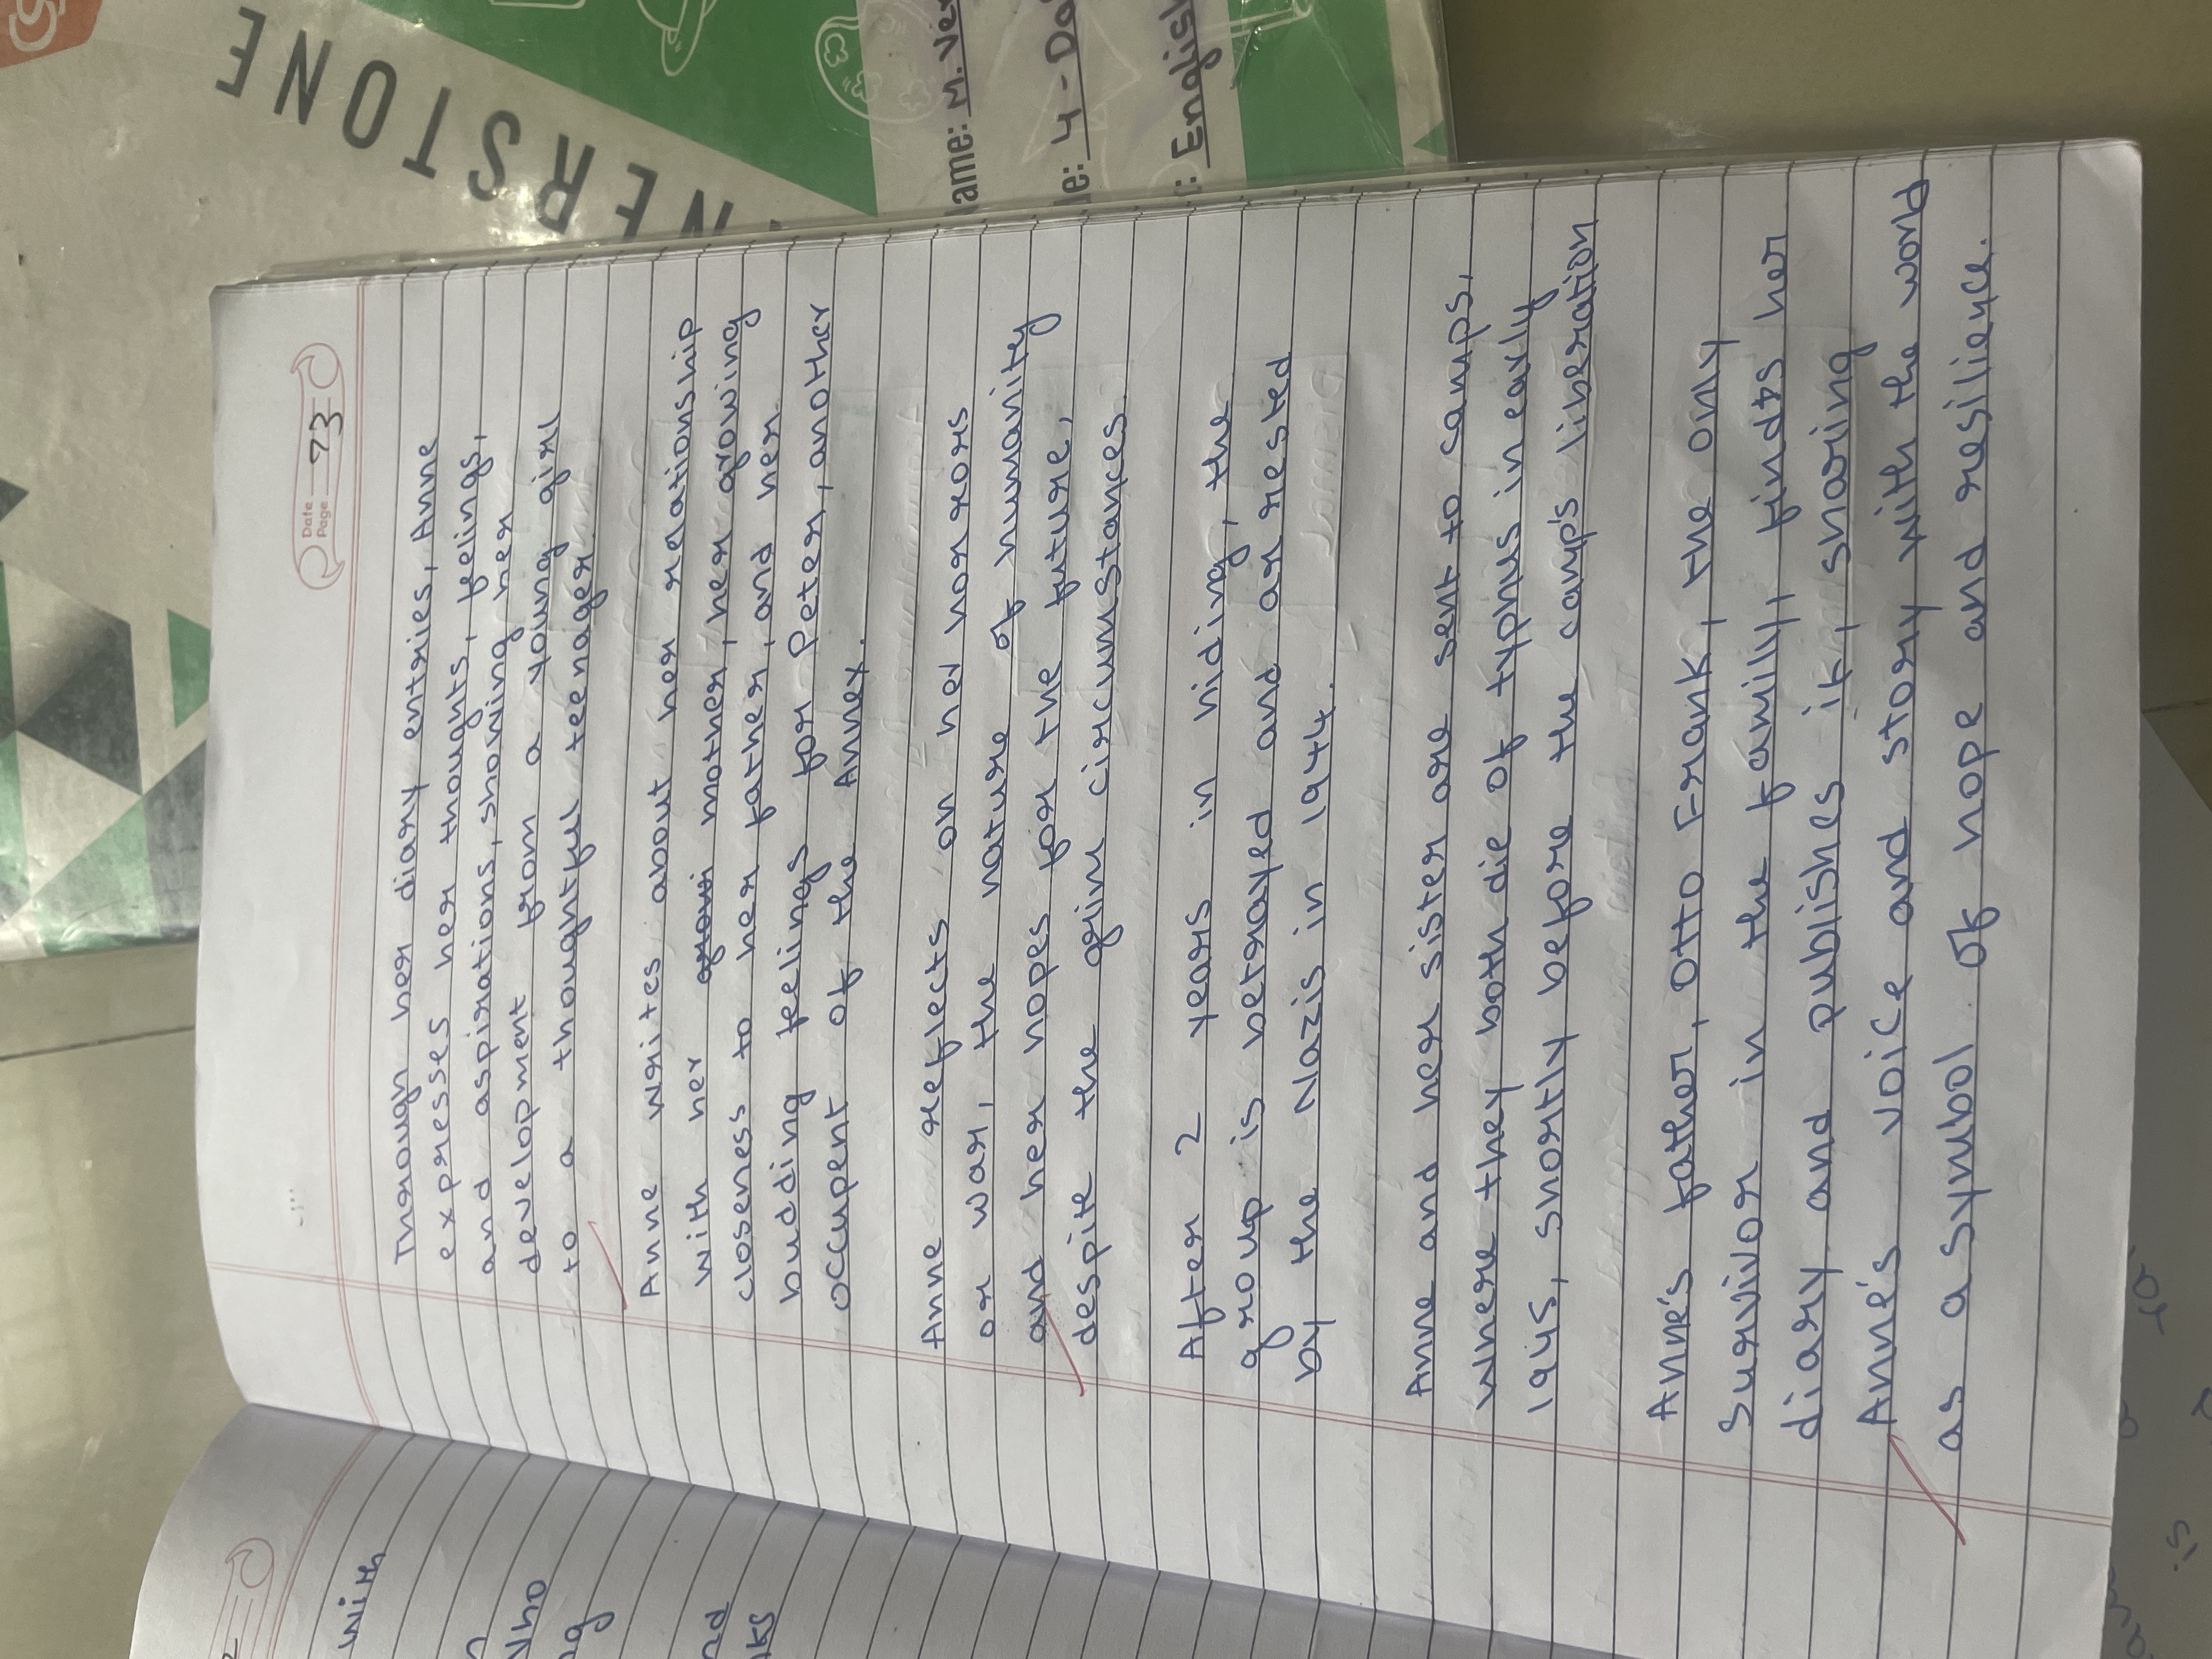 NERSTONE
ame: M. Ver
4 - Da
English
Date
Page 73
Through her diary entries, Anne
expresses her thoughts, feelings,
and aspirations, showing her
development from a young girl
to a thoughtful teenager.
Anne writes about her relationship
with her mother, her growing
closeness to her father, and her
budding feelings for Peter, another
occupent of the Annex.
Anne reflects on her horrors
or war, the nature of humanity
and her hopes for the future,
despite the grim circumstances.
After 2 years in hiding, the
group is betrayed and ar rested
by the Nazis in 1944.
Anne and her sister are sent to camps,
where they both die of typhus in early
1945, shortly before the camp's liberation
Anne's father, Otto Frank, the only
survivor in the family, finds her
diary and publishes it, sharing
Anne's voice and story with the world
as a symbol of hope and resilience.
with
who
ng
nd
ks
is